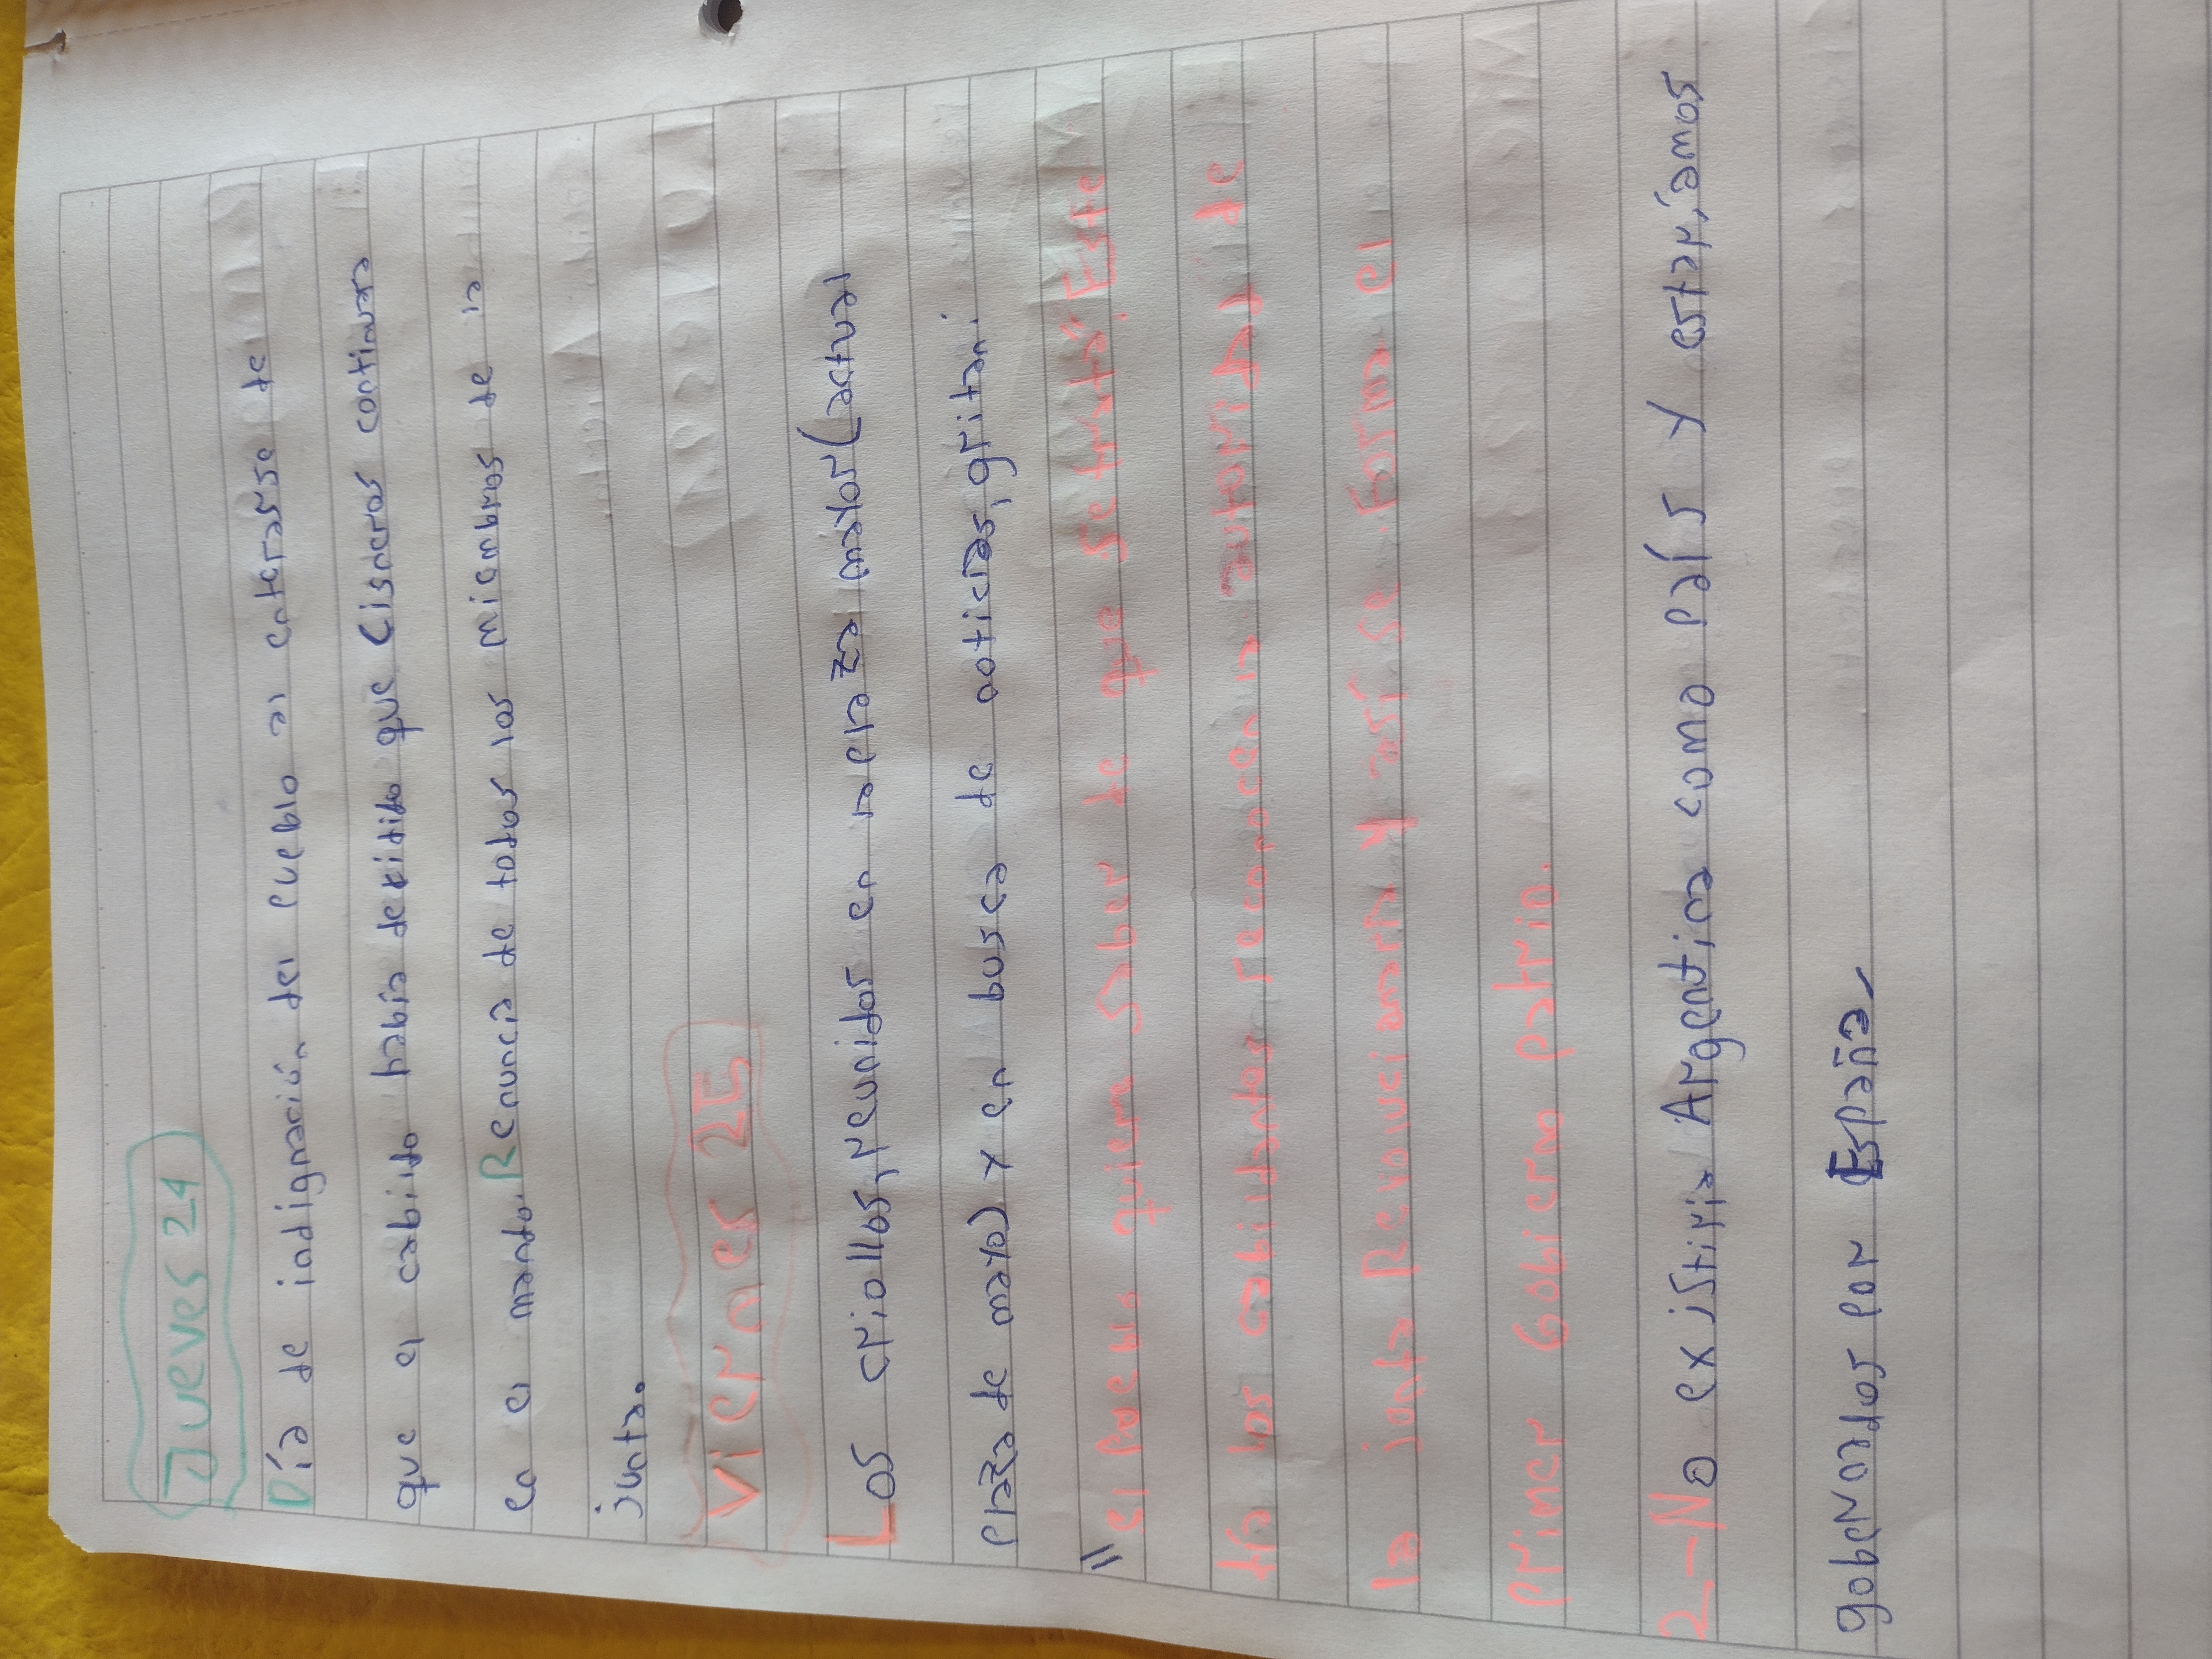 Jueves 24
Día de indignación del pueblo al enterarse de
que el cabildo había decidido que Cisneros continuara
en el mando. Renuncia de todos los miembros de la
junta.
Viernes 25
Los criollos, reunidos en la plaza mayor (actual
plaza de mayo) y en busca de noticias, gritan:
"el pueblo quiere saber de que se trata". Este
día los cabildantes reconocen la autoridad de
la junta Revolucionaria y así se forma el
primer Gobierno patrio.
2-No existiría Argentina como país y estaríamos
gobernados por España